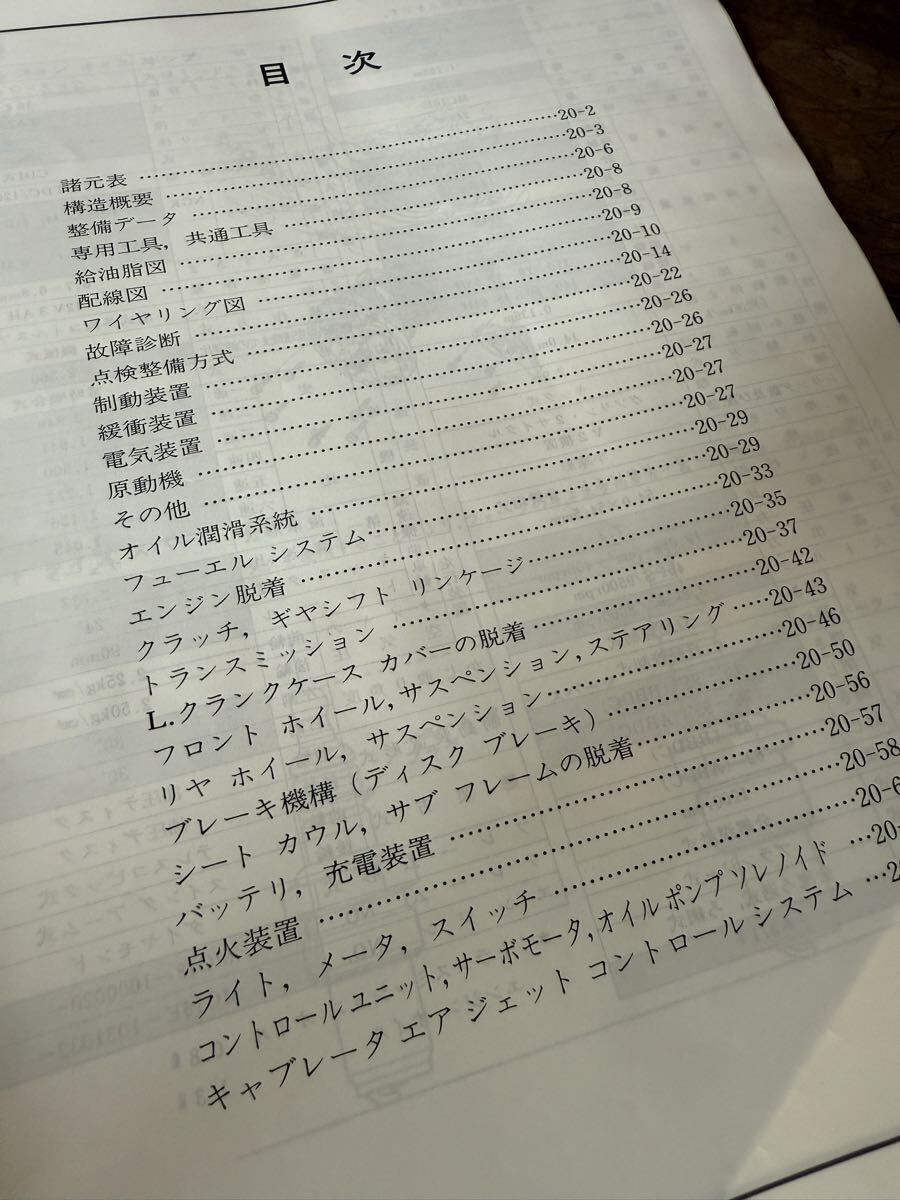 目 次
諸元表 ……20-2
構造概要 ……20-3
整備データ ……20-6
専用工具，共通工具 ……20-8
給油脂図 ……20-8
配線図 ……20-9
ワイヤリング図 ……20-10
故障診断 ……20-14
点検整備方式 ……20-22
制動装置 ……20-26
緩衝装置 ……20-26
電気装置 ……20-27
原動機 ……20-27
その他 ……20-27
オイル潤滑系統 ……20-29
フューエル システム……20-29
エンジン脱着 ……20-33
クラッチ，ギヤシフト リンケージ ……20-35
トランスミッション ……20-37
L.クランクケース カバーの脱着 ……20-42
フロント ホイール,サスペンション,ステアリング ……20-43
リヤ ホイール，サスペンション……20-46
ブレーキ機構（ディスク ブレーキ）……20-50
シート カウル，サブ フレームの脱着 ……20-56
バッテリ，充電装置 ……20-57
点火装置 ……20-58
ライト，メータ，スイッチ ……20-6
コントロールユニット,サーボモータ,オイルポンプソレノイド ……20-
キャブレータ エア ジェット コントロール システム ……2